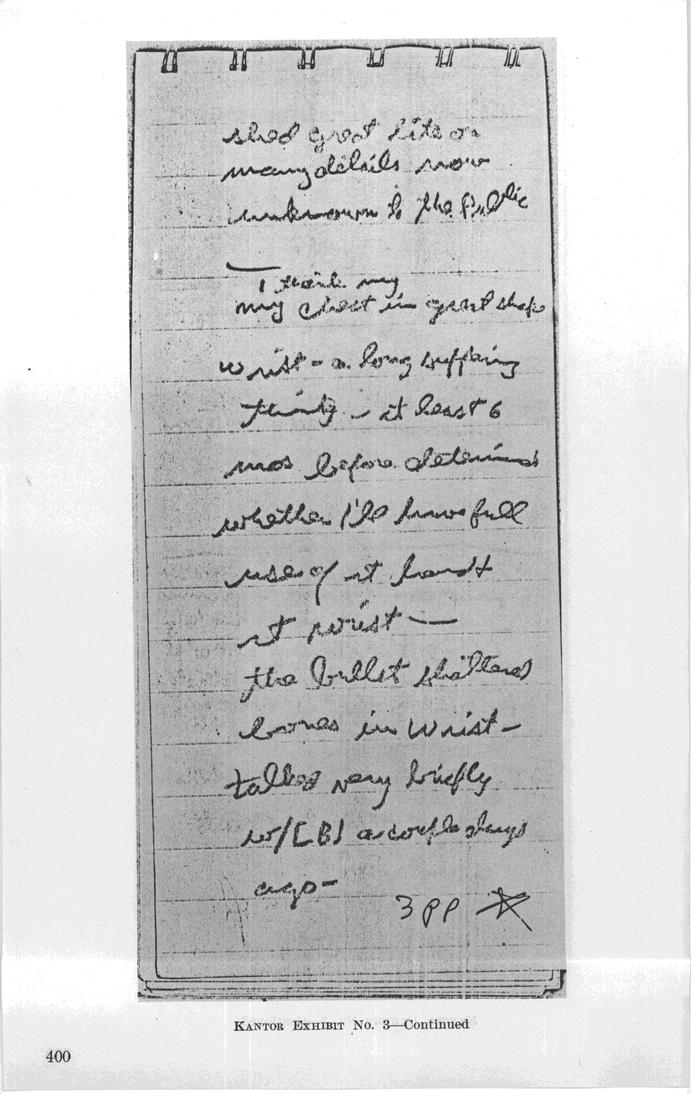 shed great lite on
many details now
unknown to the Public
I think my
my chest in great shape
wrist - a long suffering
thing - at least 6
mos before determined
whether I'll have full
use of rt hand +
rt wrist —
the bullet shattered
bones in wrist -
talked very briefly
w/FBI a couple days
ago -
3 pp
KANTOR EXHIBIT No. 3—Continued
400